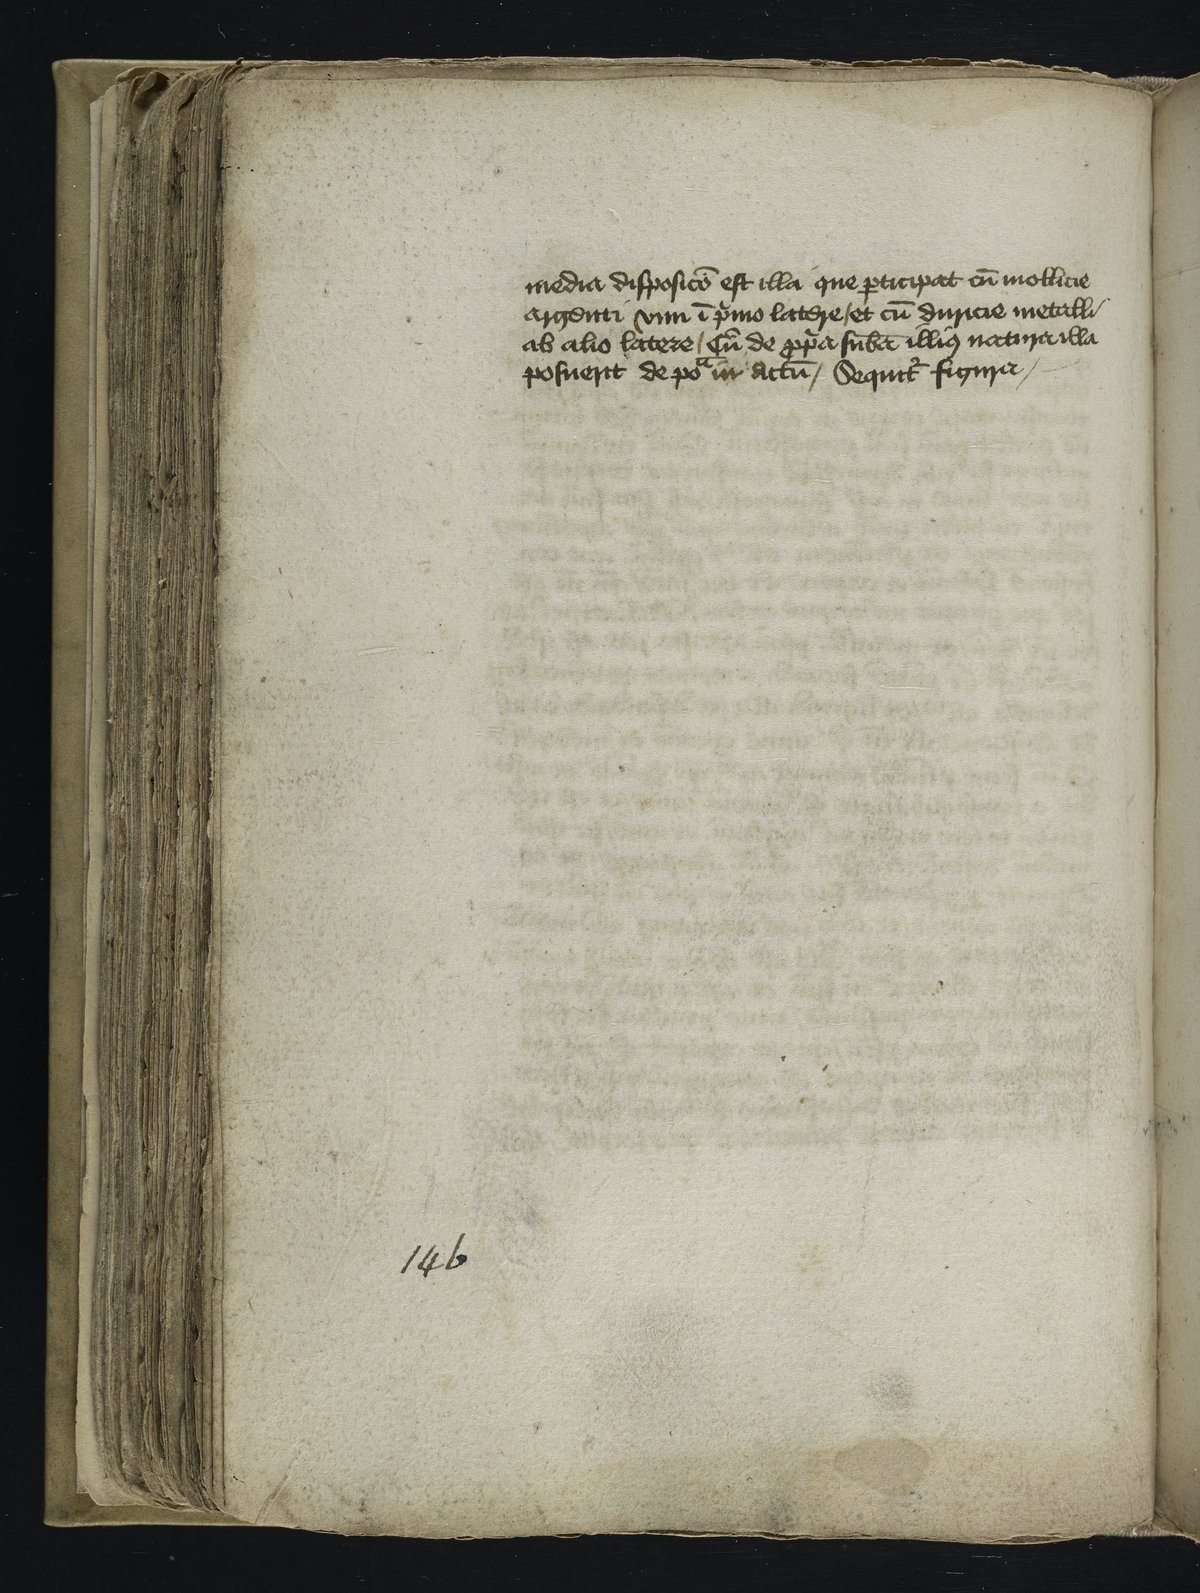 media disposicō est illa que ꝑticipat cū mollicie
argenti viui ī p̄mo latere / et cū duricie metalli
ab alio latere / Cū de ꝓp̄a sub̄a illiꝰ natura illa
posuerit de poᵃ in Actū / Sequit᷑ figura /
146